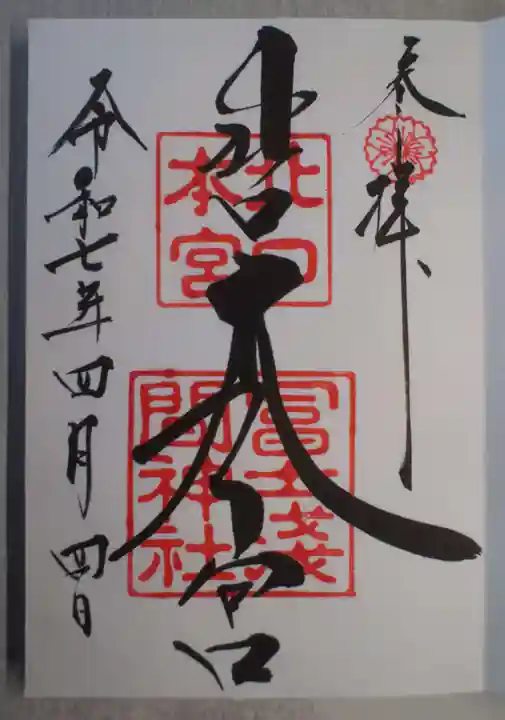 奉拝
北口
本宮
冨士淺
間神社
令和七年四月四日